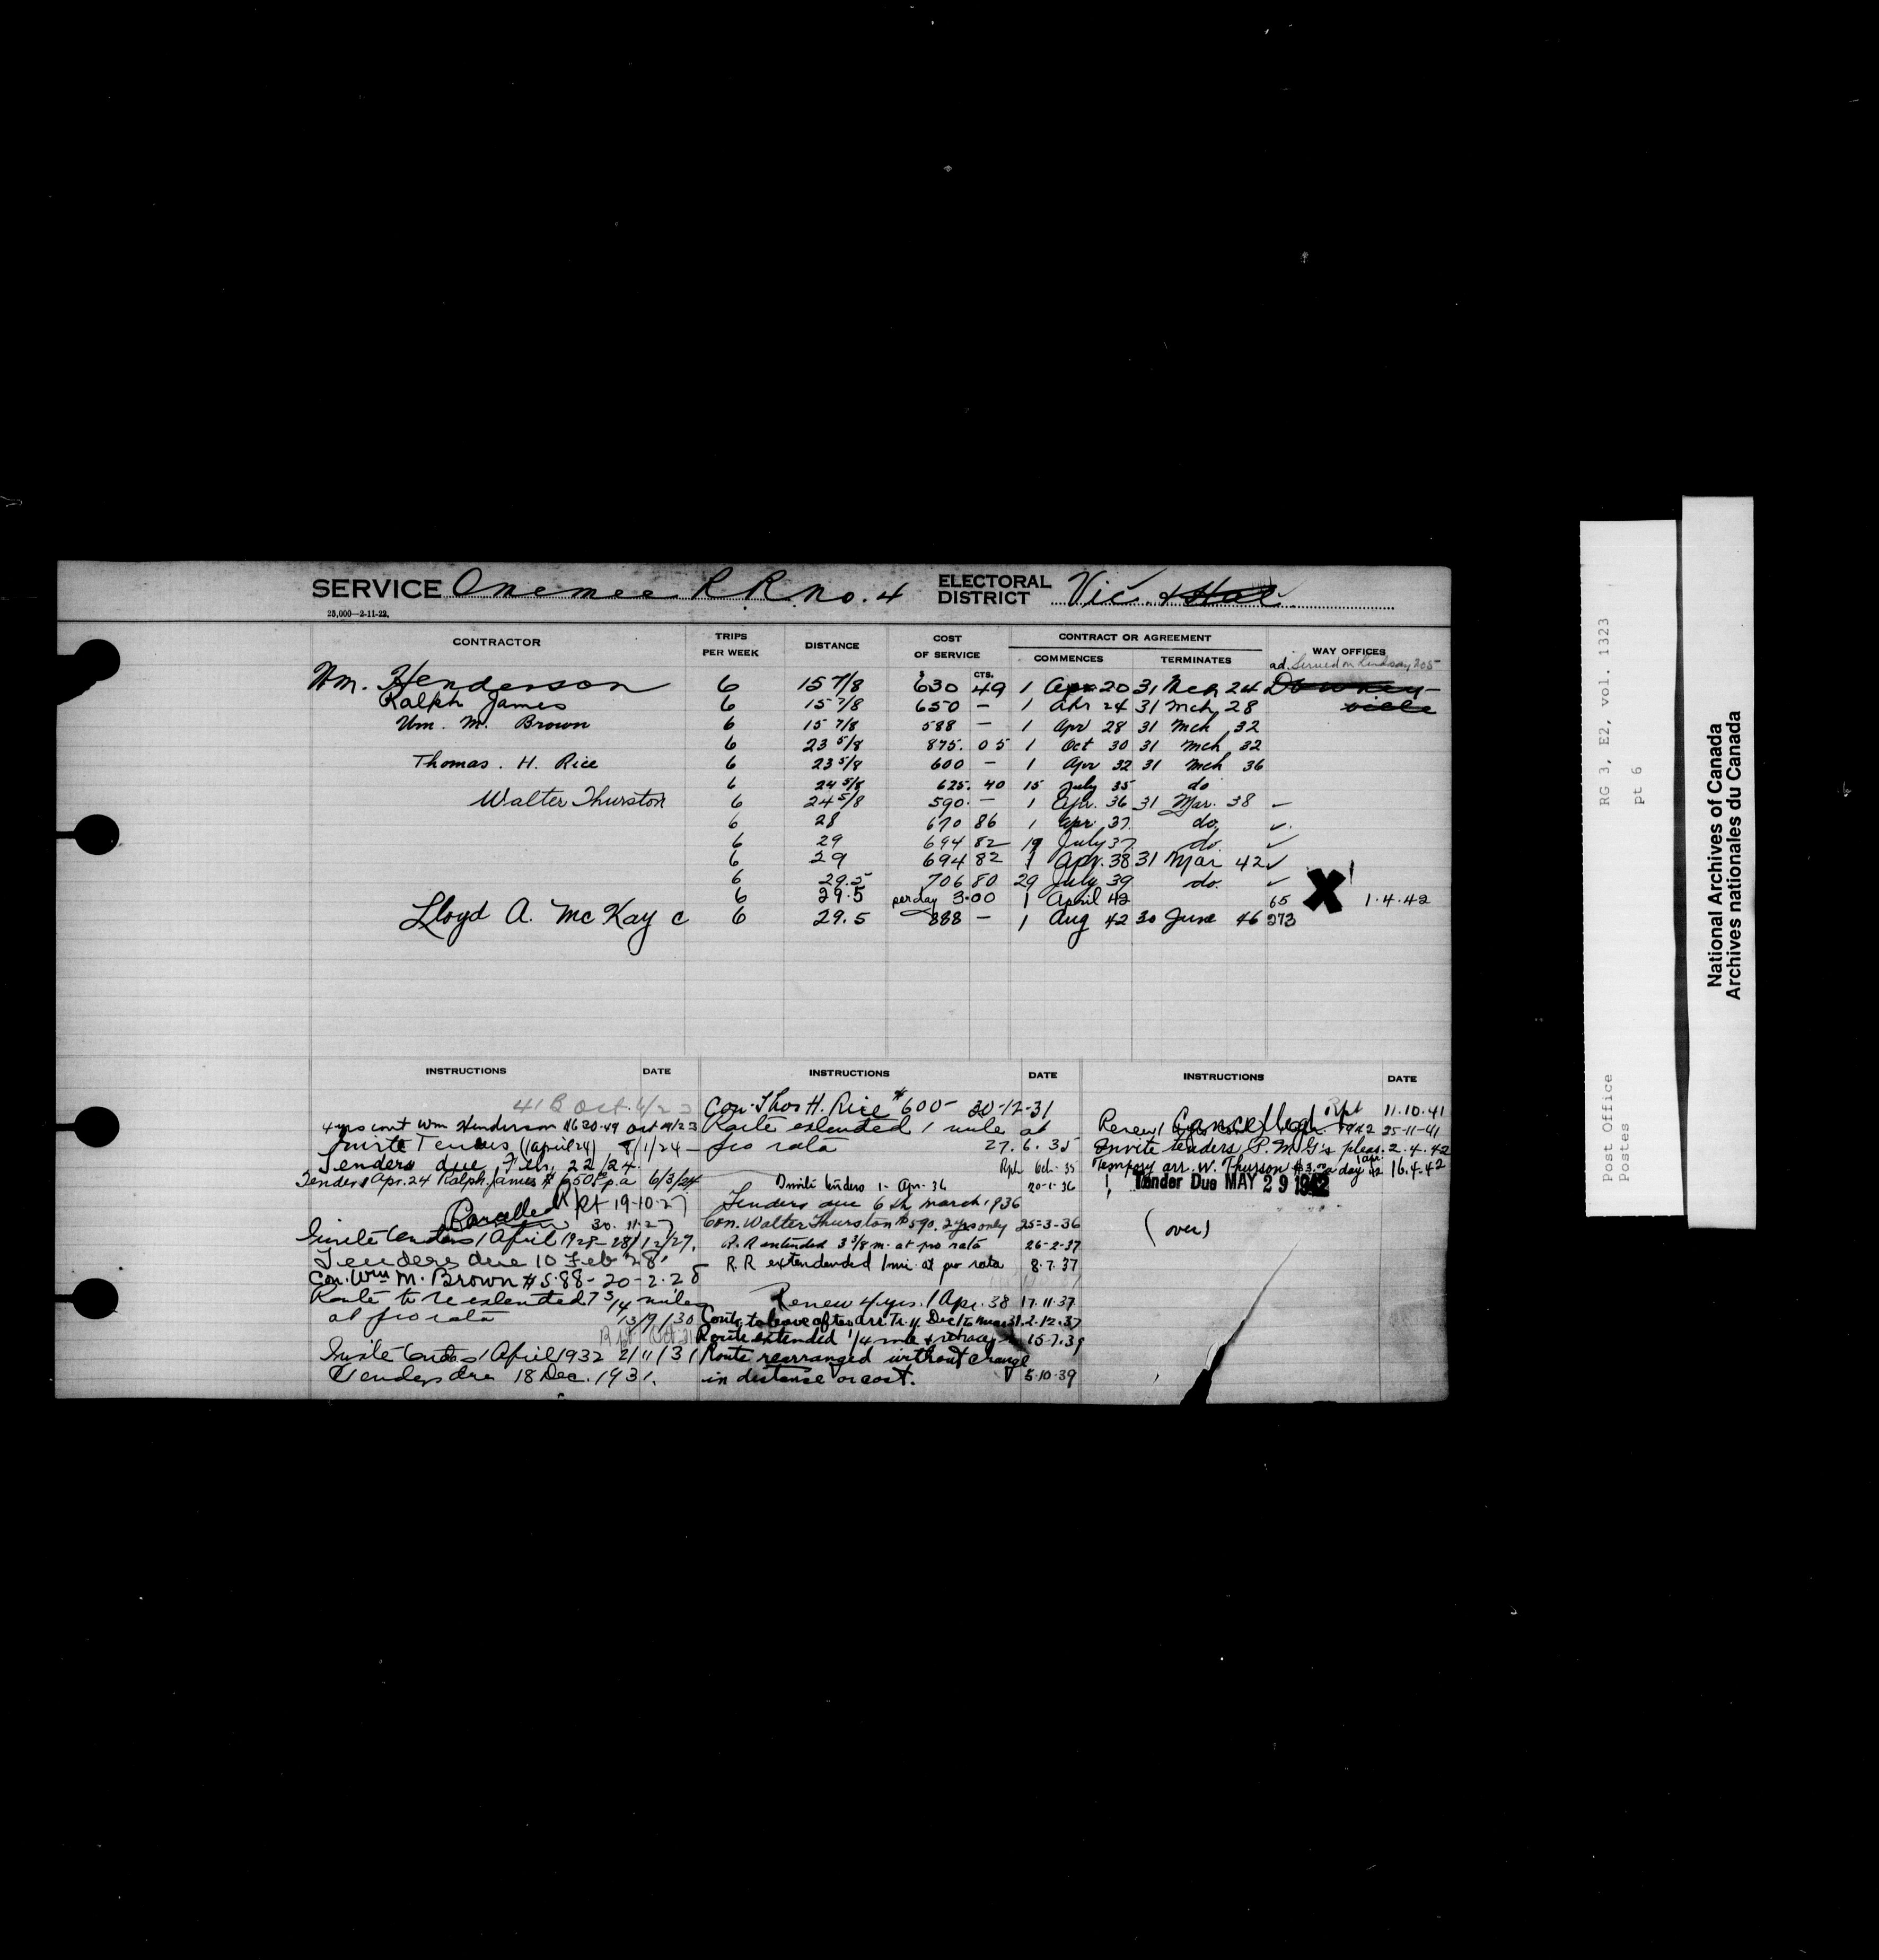 SERVICE Omemee R.R. no. 4 ELECTORAL DISTRICT Vic. & Hal
25,000—2-11-22.
CONTRACTOR TRIPS PER WEEK DISTANCE COST OF SERVICE CONTRACT OR AGREEMENT WAY OFFICES
COMMENCES TERMINATES
ad. Served on Lindsay 205
$ CTS.
Wm. Henderson 6 15 7/8 630 49 1 Apr 20 31 Mch 24 Downey-
Ralph James 6 15 7/8 650 — 1 Apr 24 31 Mch 28 ville
Wm. M. Brown 6 15 7/8 588 — 1 Apr 28 31 Mch 32
6 23 5/8 875. 05 1 Oct 30 31 Mch 32
Thomas. H. Rice 6 23 5/8 600 — 1 Apr 32 31 Mch 36
6 24 5/8 625. 40 15 July 35 do
Walter Thurston 6 24 5/8 590. — 1 Apr. 36 31 Mar. 38 —
6 28 670 86 1 Apr. 37. do. ✓.
6 29 694 82 19 July 37 do. ✓
6 29 694 82 1 Apr. 38 31 Mar 42 ✓
6 29.5 706 80 29 July 39 do. ✓
6 29.5 per day 3.00 1 April 42 65 X 1.4.42
Lloyd A. McKay c 6 29.5 888 — 1 Aug 42 30 June 46 273
INSTRUCTIONS DATE
41 B Oct. 6/23
4 yrs cont Wm Henderson $630.49 Oct 19/23
Invite Tenders (1 April 24) 8/1/24
Tenders due Feb. 22/24.
Tenders Apr. 24 Ralph James $650 p.a 6/3/24
Rpt 19-10-27
Cancelled 30. 11-27
Invite tenders 1 April 1928 — 28/12/27.
Tenders due 10 Feb 28.
Con. Wm M. Brown $588 - 20-2-28
Route to be extended 7 3/4 miles
at pro rata 13/9/30
Rpt Oct 31
Invite tenders 1 April 1932 2/11/31
Tenders due 18 Dec. 1931.
INSTRUCTIONS DATE
Con. Thos H. Rice $600- 30-12-31
Route extended 1 mile at
pro rata 27. 6. 35
Rpt Oct. 35
Invite tenders 1- Apr. 36 20-1-36
Tenders due 6th March 1936
Con. Walter Thurston $590. 2 yrs only 25-3-36
R.R extended 3 3/8 m. at pro rata 26-2-37
R.R extendended 1 mi. at pro rata 8.7.37
Renew 4 yrs. 1 Apr. 38 17.11.37
Contr. to leave after arr. Tr. 11 Dec 1 to Mar 31. 2.12.37
Route extended 1/4 mile & retrace 15-7.39
Route rearranged without change
in distance or cost. 5.10.39
INSTRUCTIONS DATE
Rpt 11.10.41
Renew Cancelled 1942 25-11-41
Invite tenders P.M.G's pleas. 2.4.42
Tempory arr. W. Thurson $3.00 a day 1 Apr. 16.4.42
Tender Due MAY 29 1942
(over)
Post Office
Postes
RG 3, E2, vol. 1323
pt 6
National Archives of Canada
Archives nationales du Canada